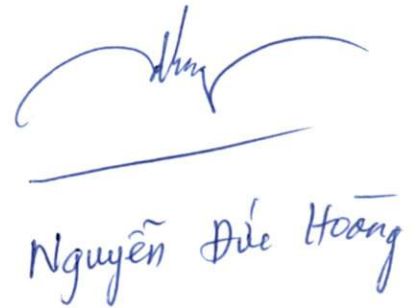 Nguyễn Đức Hoàng